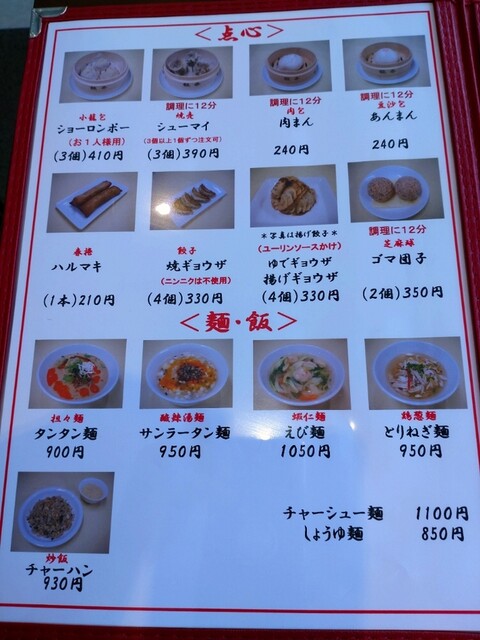 ＜点心＞
小龍包
ショーロンポー
(お1人様用)
(3個)410円
調理に12分
焼売
シューマイ
(3個以上1個ずつ注文可)
(3個)390円
調理に12分
肉包
肉まん
240円
調理に12分
豆沙包
あんまん
240円
春捲
ハルマキ
(1本)210円
餃子
焼ギョウザ
(ニンニクは不使用)
(4個)330円
＊写真は揚げ餃子＊
(ユーリンソースかけ)
ゆでギョウザ
揚げギョウザ
(4個)330円
調理に12分
芝麻球
ゴマ団子
(2個)350円
＜麺・飯＞
担々麺
タンタン麺
900円
酸辣湯麺
サンラータン麺
950円
蝦仁麺
えび麺
1050円
鶏葱麺
とりねぎ麺
950円
炒飯
チャーハン
930円
チャーシュー麺 1100円
しょうゆ麺 850円